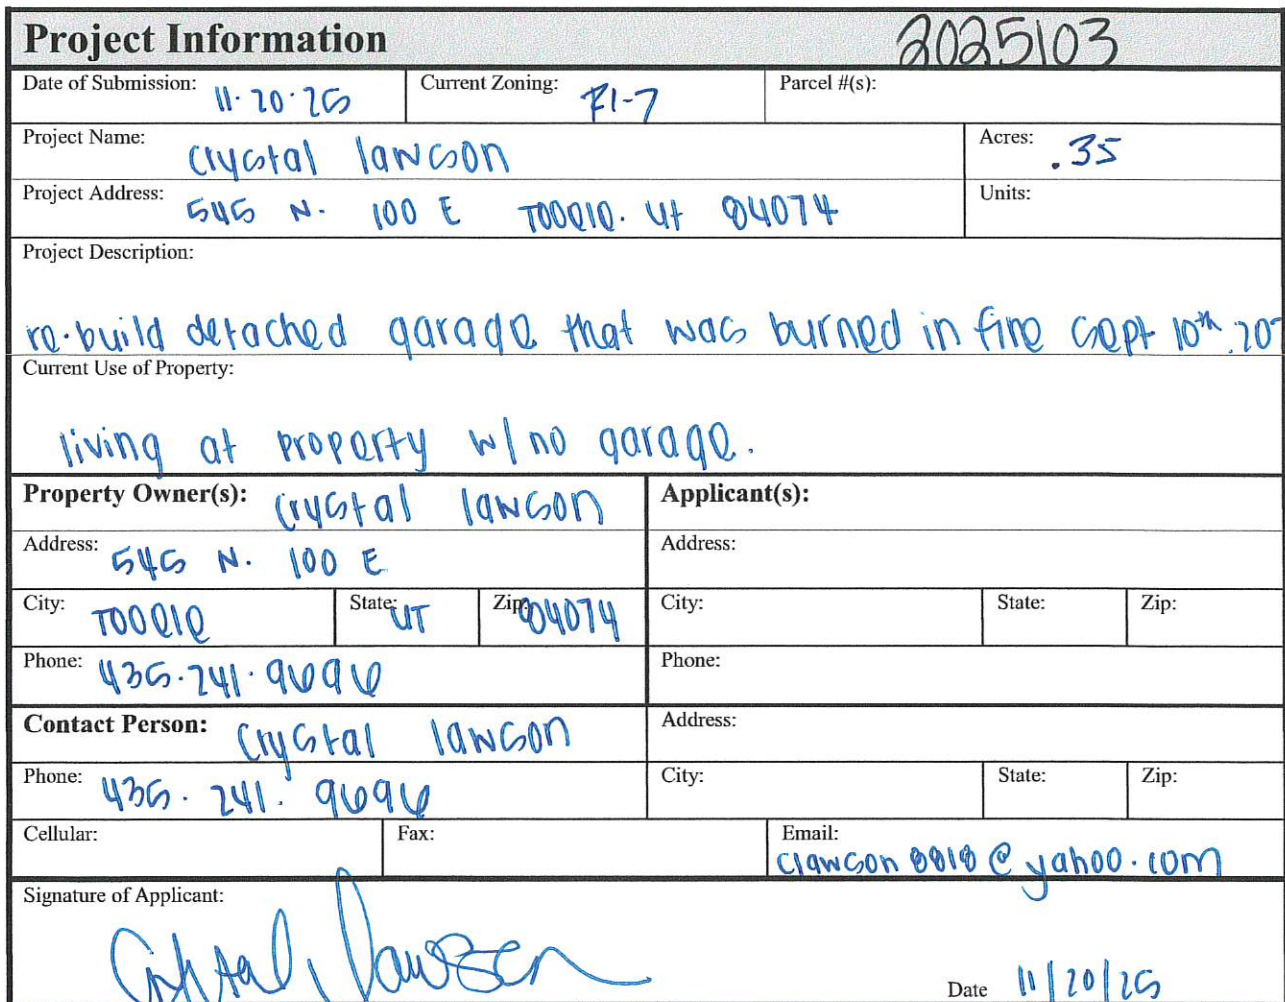 Project Information 2025103
Date of Submission: 11.20.25 Current Zoning: R1-7 Parcel #(s):
Project Name: Crystal lawson Acres: .35
Project Address: 545 N. 100 E Tooele. Ut 84074 Units:
Project Description:
re-build detached garage that was burned in fire Sept 10th, 20
Current Use of Property:
living at property w/ no garage.
Property Owner(s): Crystal lawson Applicant(s):
Address: 545 N. 100 E Address:
City: Tooele State: UT Zip: 84074 City: State: Zip:
Phone: 435.241.9696 Phone:
Contact Person: Crystal lawson Address:
Phone: 435. 241. 9696 City: State: Zip:
Cellular: Fax: Email:
clawson8818@yahoo.com
Signature of Applicant:
Crystal Lawson Date 11/20/25